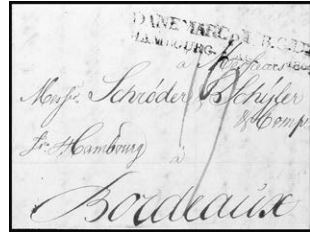 DANEMARC PAR
HAMBOURG
à Messieurs
Messrs. Schröder & Schÿler
& Comp
fr. Hambourg
à
Bordeaux